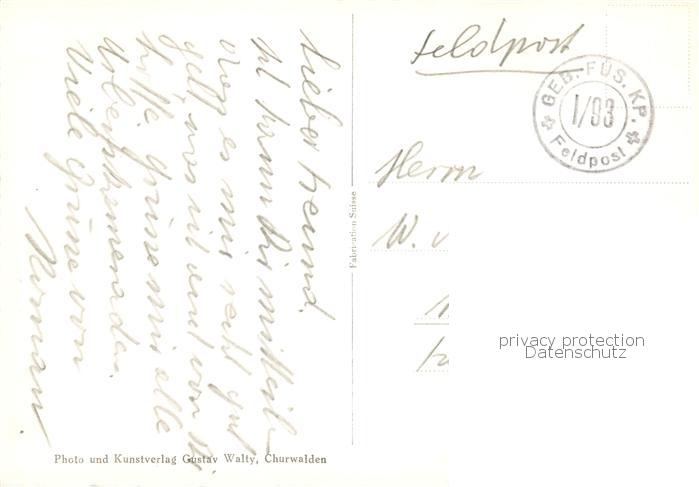 Feldpost
GEB. FÜS. KP.
I/93
Feldpost
Herrn
W. v
privacy protection
Datenschutz
Fabrication Suisse
Lieber Freund.
kann Dir mitteil-
es mir recht gut
geht was ich und von Dir
hoffe. Grüsse mir alle
Arbeitskameraden.
Viele Grüsse von
Herman
Photo und Kunstverlag Gustav Walty, Churwalden